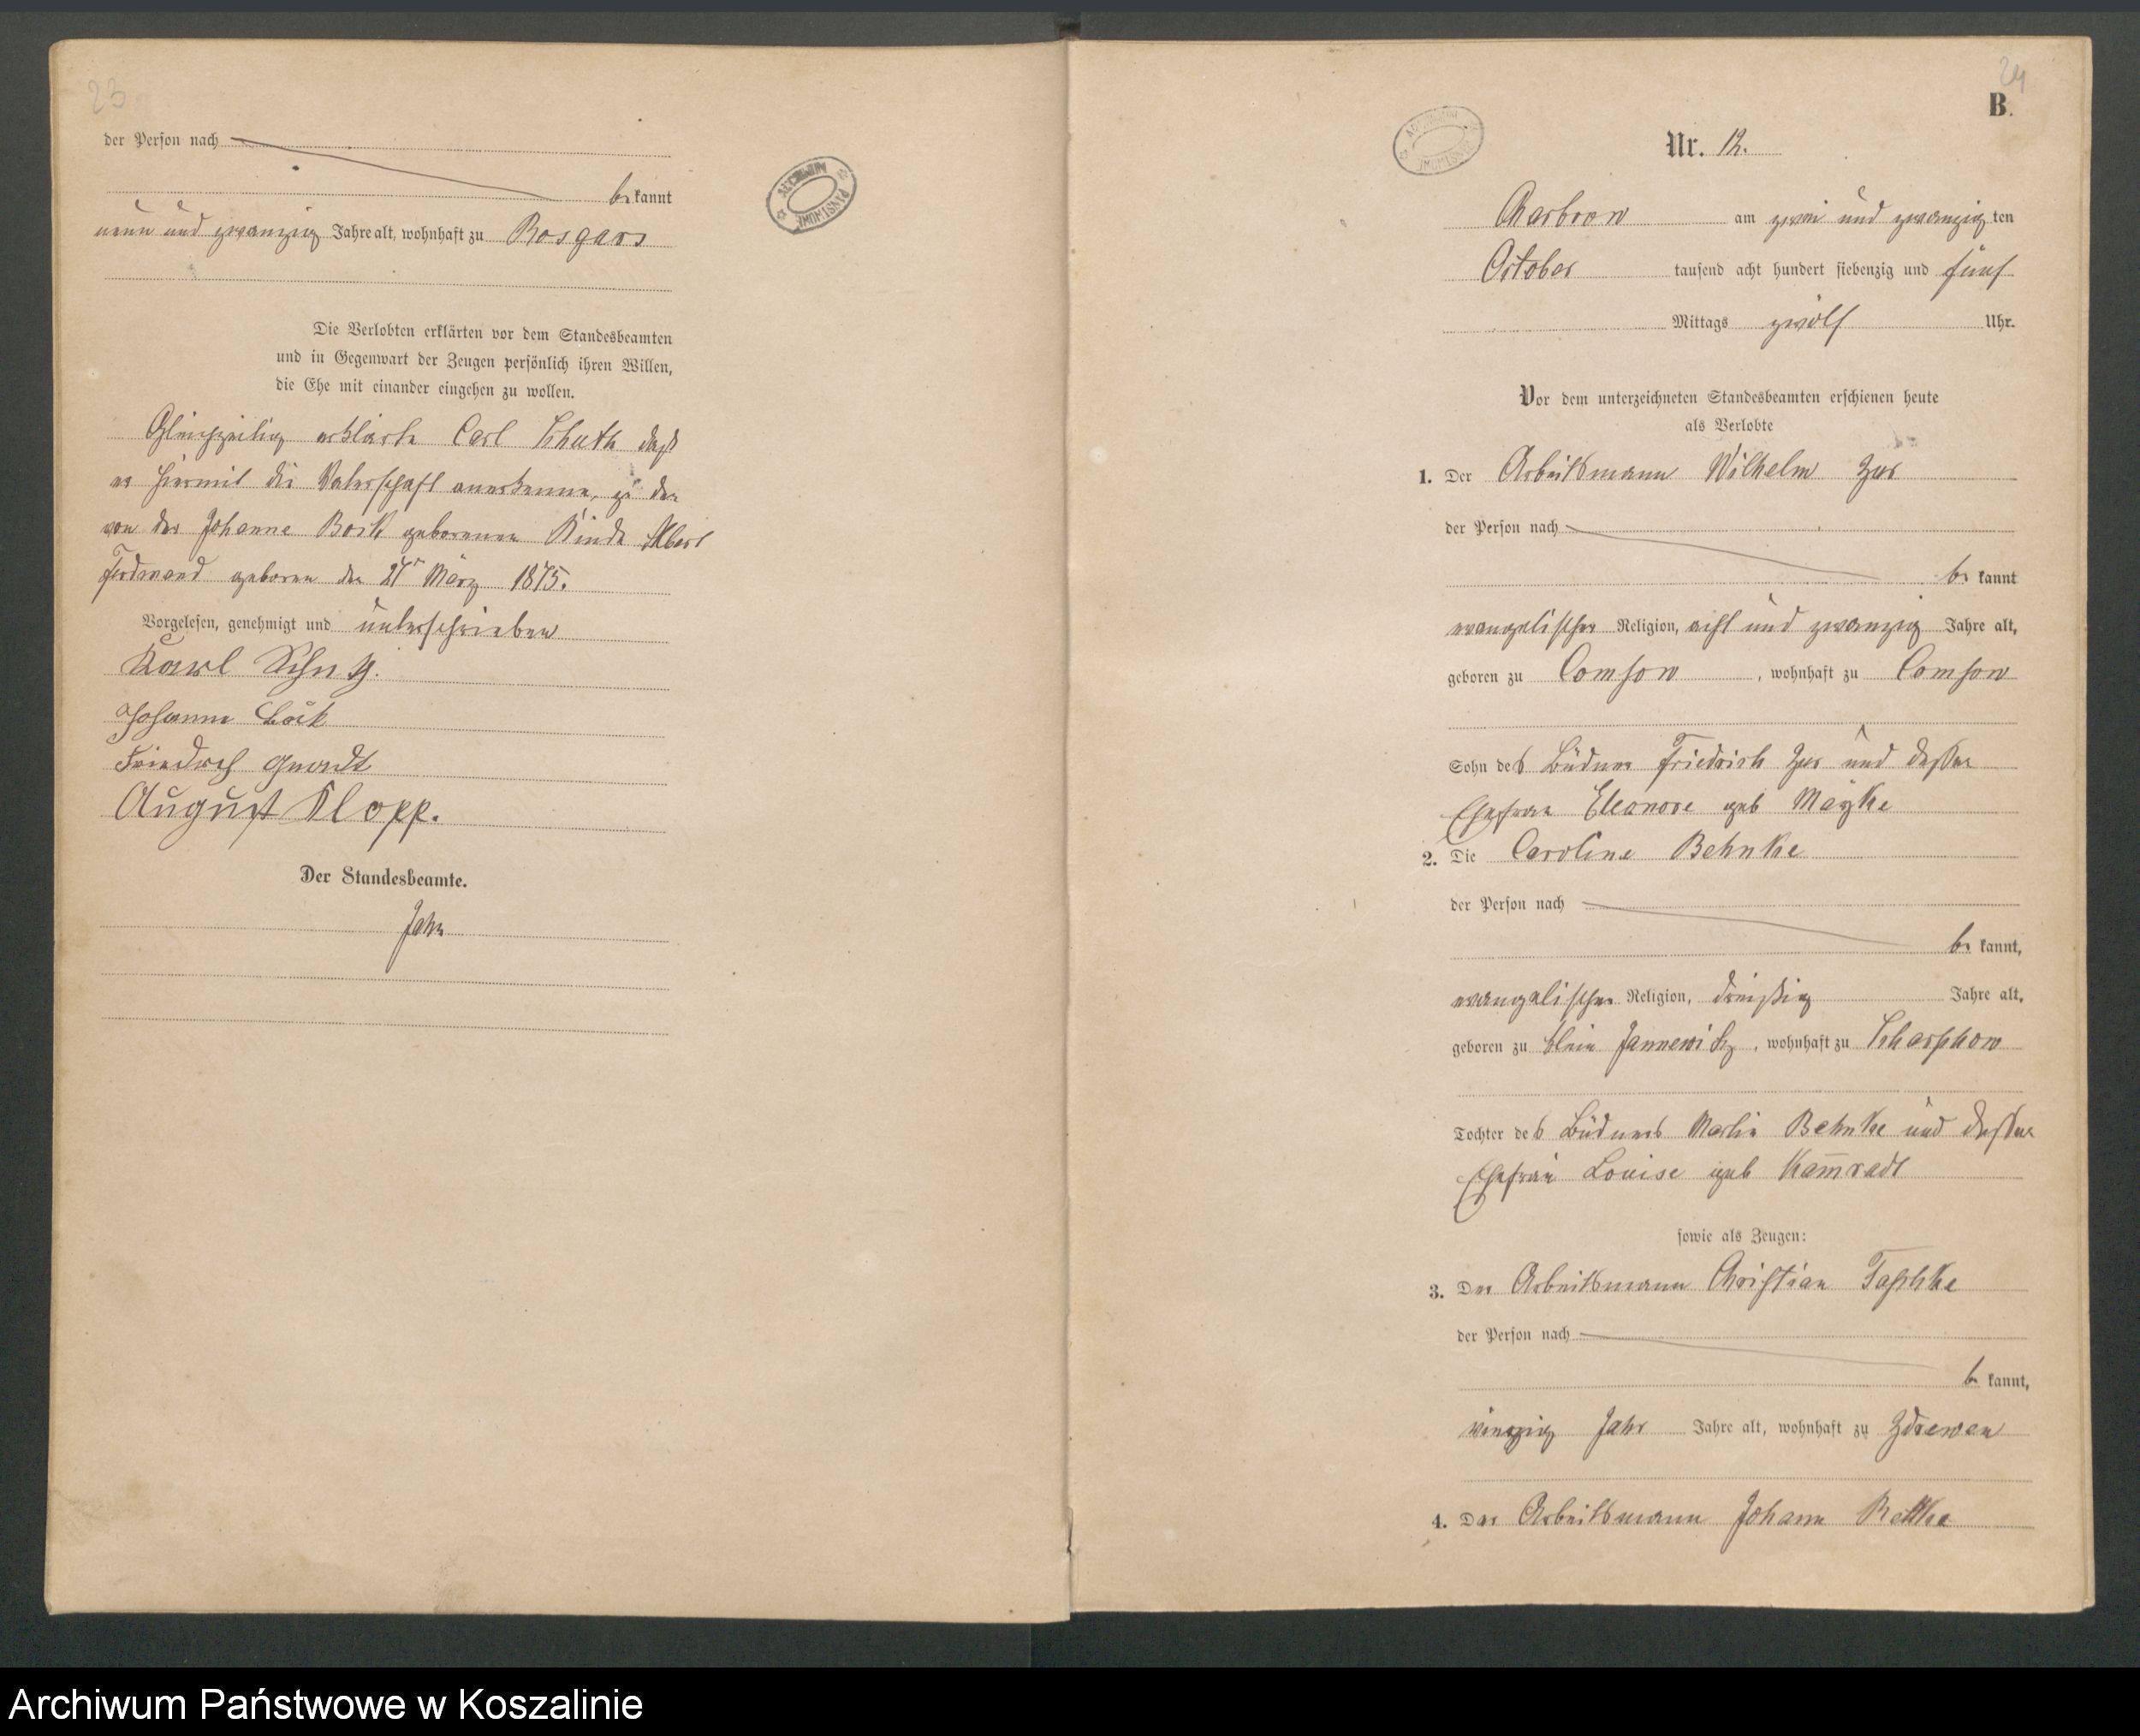 23
der Person nach
be kannt
neun und zwanzig Jahre alt, wohnhaft zu Rosgars
Die Verlobten erklärten vor dem Standesbeamten
und in Gegenwart der Zeugen persönlich ihren Willen,
die Ehe mit einander eingehen zu wollen.
Gleichzeitig erklärte Carl Schuth daß
er hiermit die Vaterschaft anerkenne, zu dem
von der Johanne Bock geborenen Kinde Albert
Ferdinand geboren den 27t März 1875.
Vorgelesen, genehmigt und unterschrieben
Karl
Johanne Bock
Friedrich Gnadt
August Klopp.
Der Standesbeamte.
Jahn
ARCHIWUM PAŃSTWOWE
24
B.
ARCHIWUM PAŃSTWOWE
Nr. 12.
Charbrow am zwei und zwanzig ten
October tausend acht hundert siebenzig und fünf
Mittags zwölf Uhr.
Vor dem unterzeichneten Standesbeamten erschienen heute
als Verlobte
1. Der Arbeitsmann Wilhelm
der Person nach
be kannt
evangelischer Religion, acht und zwanzig Jahre alt,
geboren zu Comsow, wohnhaft zu Comsow
Sohn des Büdner Friedrich und dessen
Ehefrau Eleonore geb
2. Die Caroline Behnke
der Person nach
be kannt,
evangelischer Religion, dreißig Jahre alt,
geboren zu Klein Jannewitz, wohnhaft zu Scharschow
Tochter des Büdners Martin Behnke und dessen
Ehefrau Louise geb Kam̅radt
sowie als Zeugen:
3. Der Arbeitsmann Christian Taschke
der Person nach
be kannt,
vierzig Jahr Jahre alt, wohnhaft zu Zdrewen
4. Der Arbeitsmann Johann Rettke
Archiwum Państwowe w Koszalinie